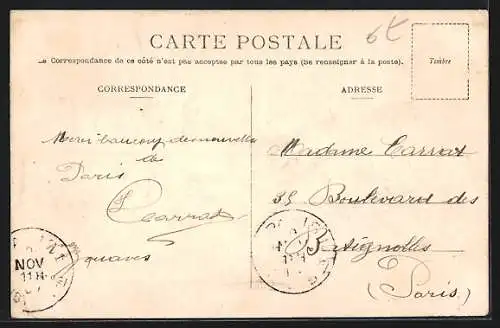 6€
CARTE POSTALE
Le Correspondance de ce côté n'est pas acceptée par tous les pays (Se renseigner à la poste).
Timbre
CORRESPONDANCE
ADRESSE
Merci beaucoup de nouvelles
de
Paris
Carrat
Madame Carrat
35 Boulevard des
Batignolles
(Paris)
NOV